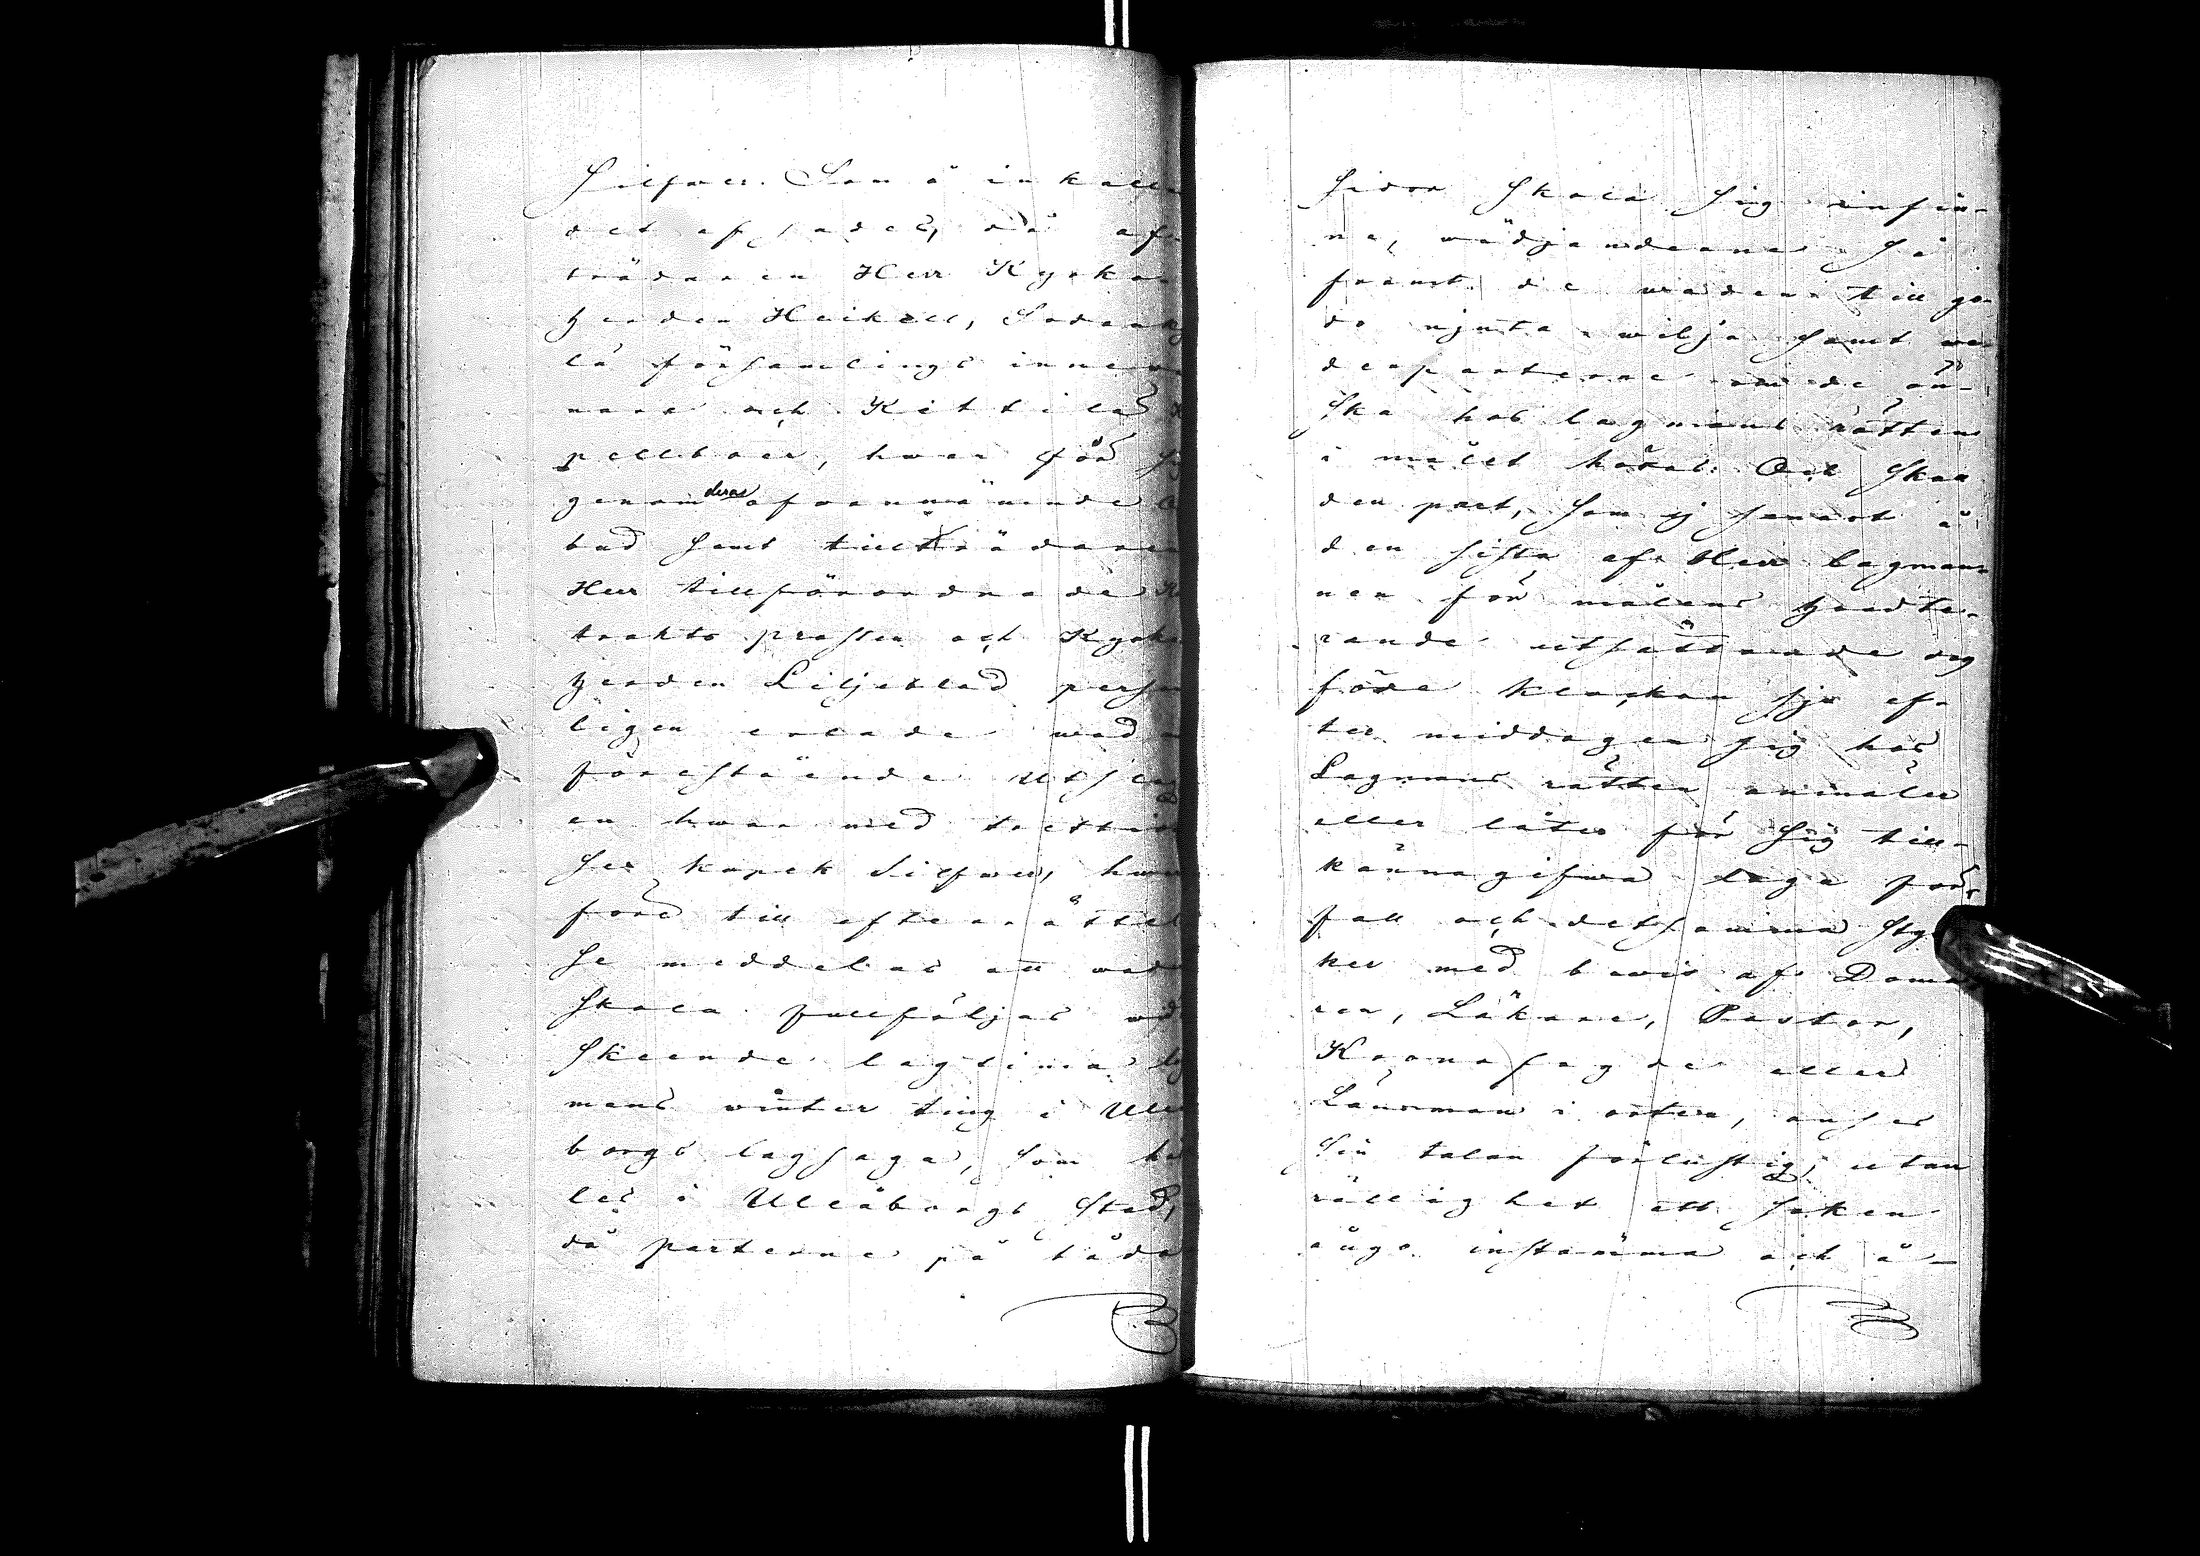 Silfwer. Som å inkalle
det afsades, då af-
trädaren Herr Kyrko-
herden Heikell, Sodanky
lä församlings inne wå
nare och Kittilä
pellboer, hwar för
genom deras ofvannämnde
bud samt tillträdaren
Herr tillförordnade
trakts prosten och Kyrko
herden Liljeblad person
ligen erlade wad
förestående utslag
en hwar med trettio
sex kopek Silfwer, hwar
före till efterrättel
se meddelas att wad
skola fullföljas wid
skeende lagtima Lag
mans winter ting i Uleå
borgs lagsaga, som hål
les i Uleåborgs Stad,
då parterne på båda
sidor skola sig infin-
na, wädjanderne så
framt de waden till go-
do njuta wilja samt we-
derparterne om de ön-
ska hos lagmans rätten
i målet höras. Och skall
den part, som ej senast å
den sista af Herr Lagman-
nen för målens handte-
rande utsättande dag
före klockan sju ef-
ter middagen sig hos
Lagmans rätten anmäler
eller låter för sig till-
kännagifwa laga för-
fall och detsamma styr-
ker med bevis af Doma-
ren, Läkare, Pastor,
Kronofogde eller
Länsman i orten, anses
sin talan förlustig; utan
rättighet att saken
ånyo instämma och å-